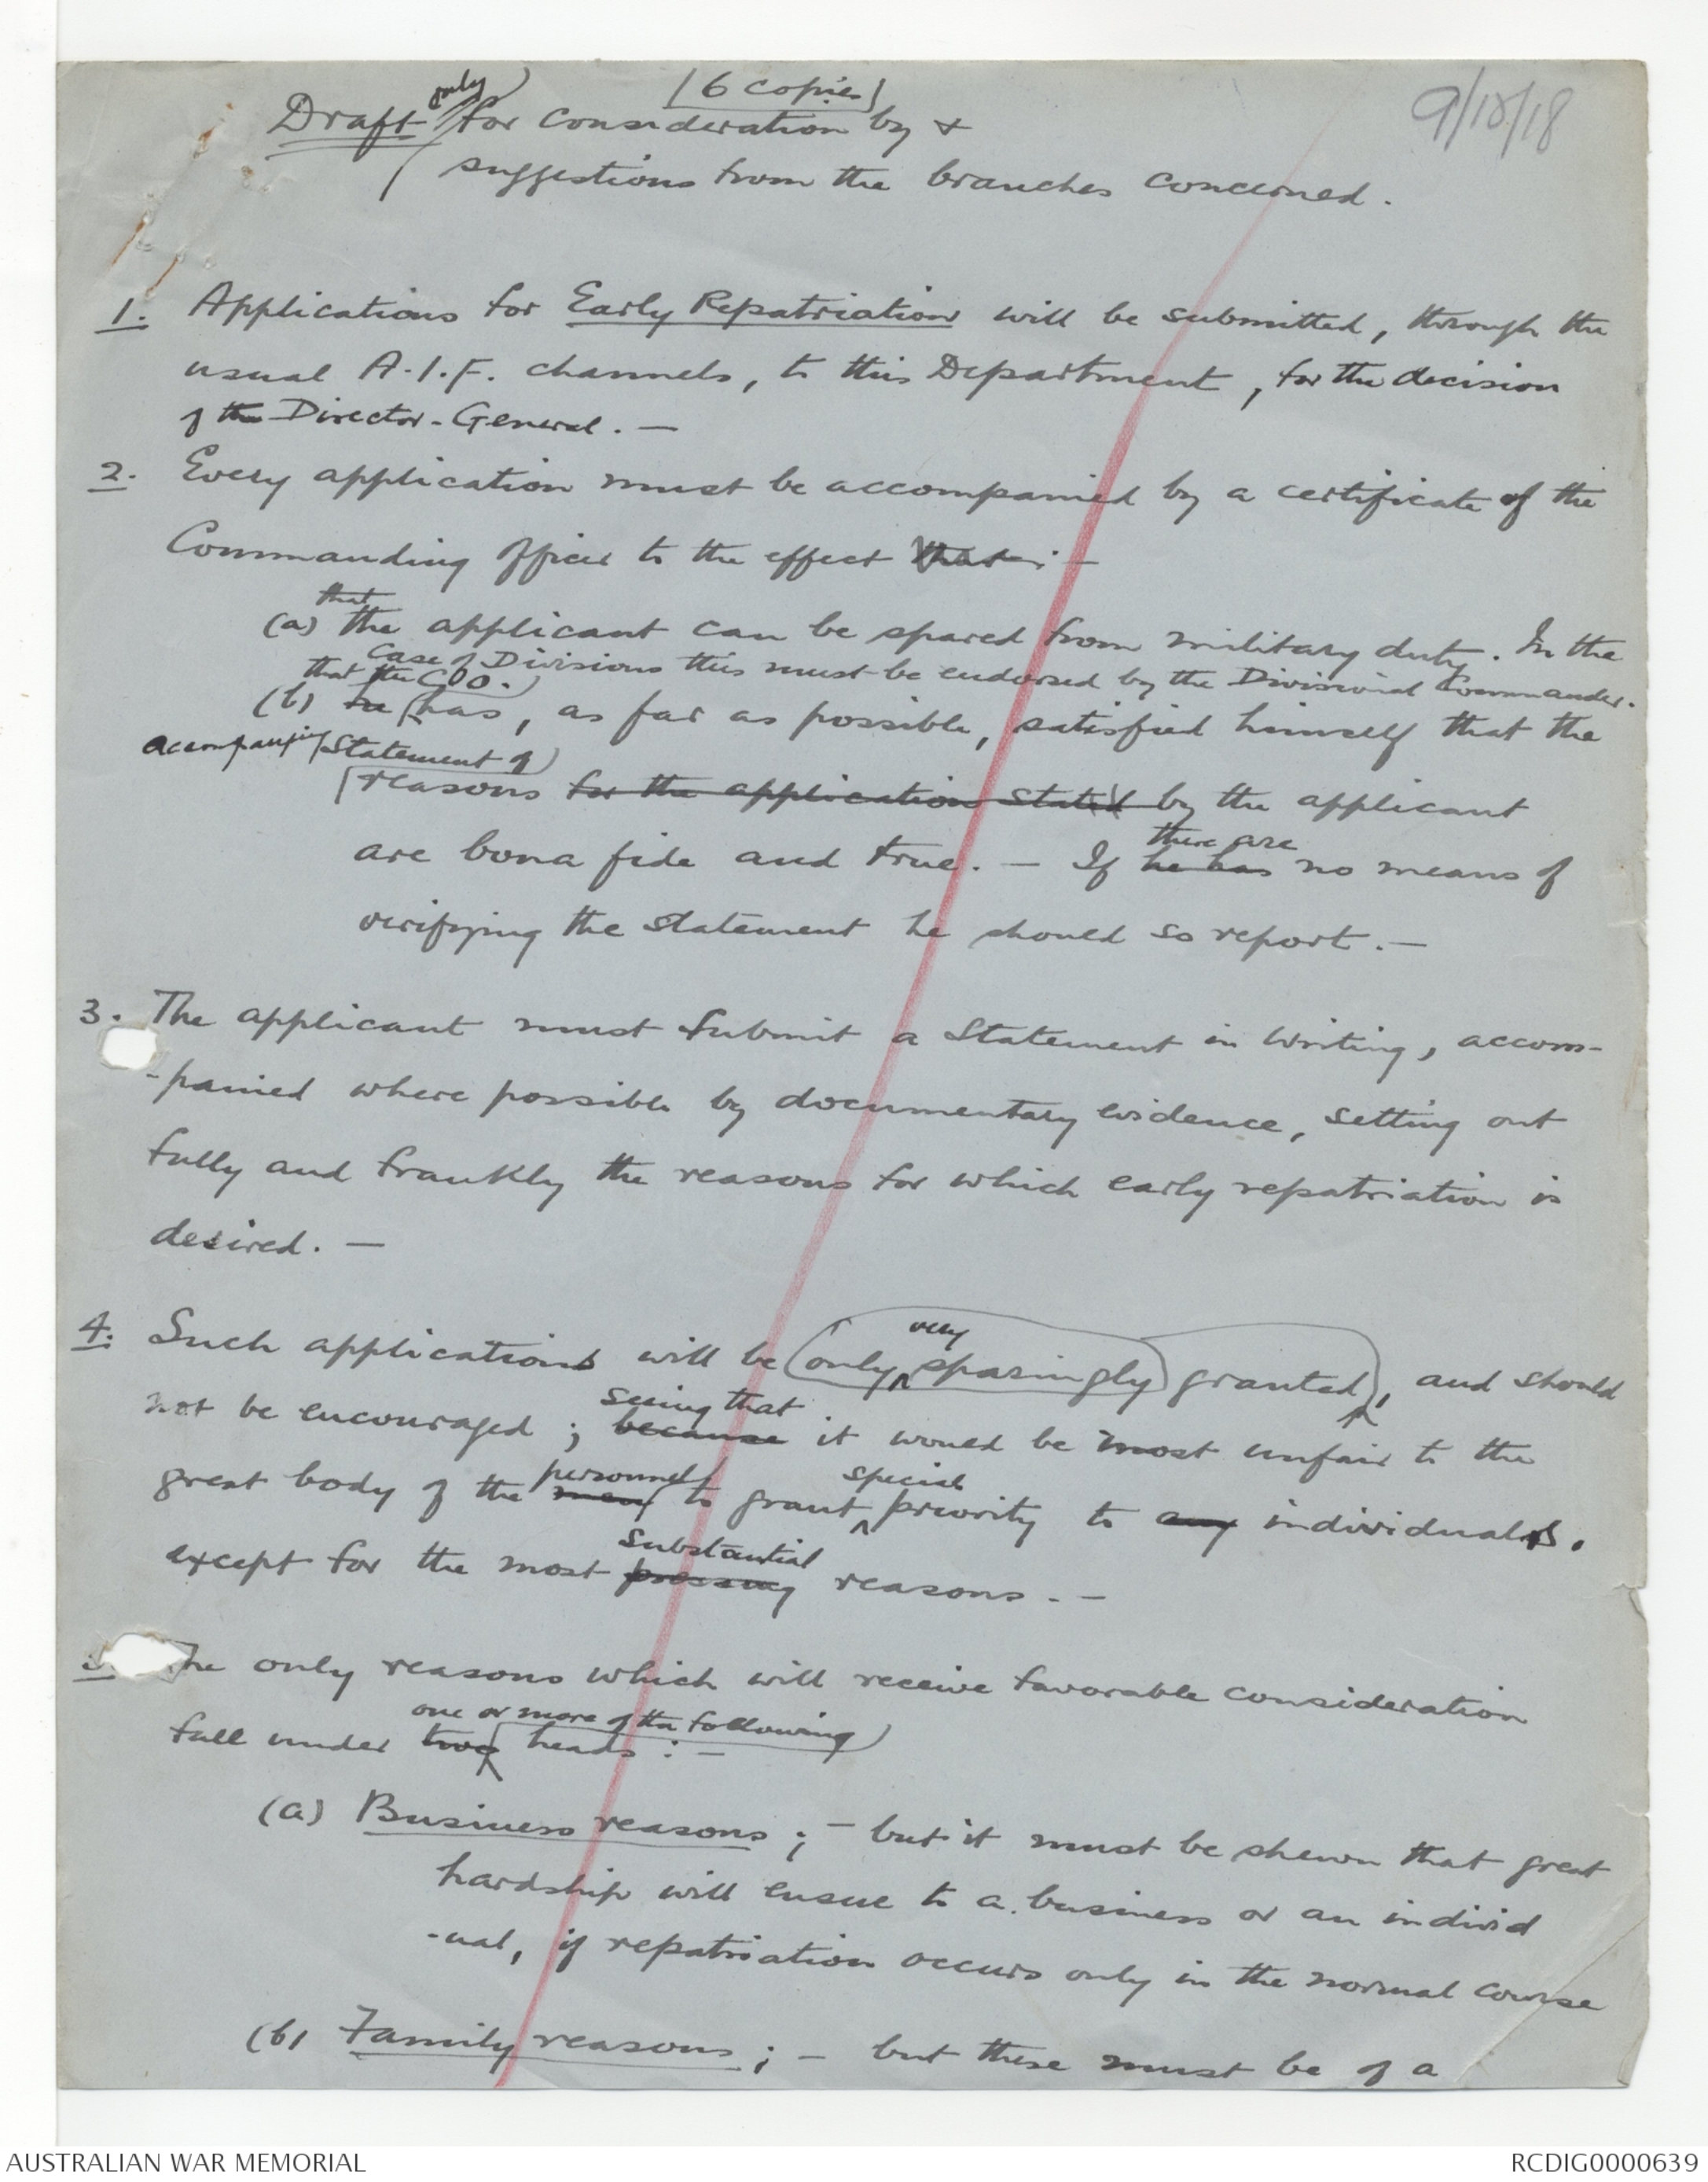 (6 copies)
9/12/18
Draft only for consideration by &
suggestions from the branches concerned.
1. Applications for Early Repatriation will be submitted, through the
usual A.I.F. channels, to this Department, for the decision
of the Director-General. —
2. Every application must be accompanied by a certificate of the
Commanding Officer to the effect that :—
that
(a) the applicant can be spared from military duty. In the
case of Divisions this must be endorsed by the Divisional Commander.
that the C.O.
(b) he has, as far as possible, satisfied himself that the
accompanying Statement of
reasons for the application stated by the applicant
are bona fide and true. — If he has there are no means of
verifying the statement he should so report. —
3. The applicant must submit a Statement in writing, accom-
-panied where possible by documentary evidence, setting out
fully and frankly the reasons for which early repatriation is
desired. —
4. Such applications will be (only very sparingly) granted, and should
not be encouraged ; because seeing that it would be most unfair to the
great body of the men personnel to grant special priority to any individuals,
except for the most pressing substantial reasons. —
5. The only reasons which will receive favorable consideration
fall under two one or more of the following heads :—
(a) Business reasons ; — but it must be shewn that great
hardship will ensue to a business or an individ
-ual, if repatriation occurs only in the normal course
(b) Family reasons ; — but these must be of a
AUSTRALIAN WAR MEMORIAL
RCDIG0000639